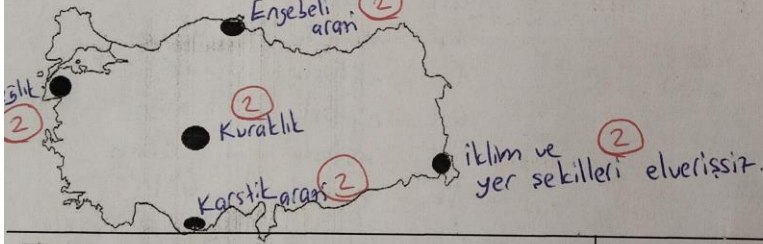 Engebeli
arazi 2
2
2
Kuraklık
Karstik arazi 2
iklim ve 2
yer şekilleri elverişsiz.